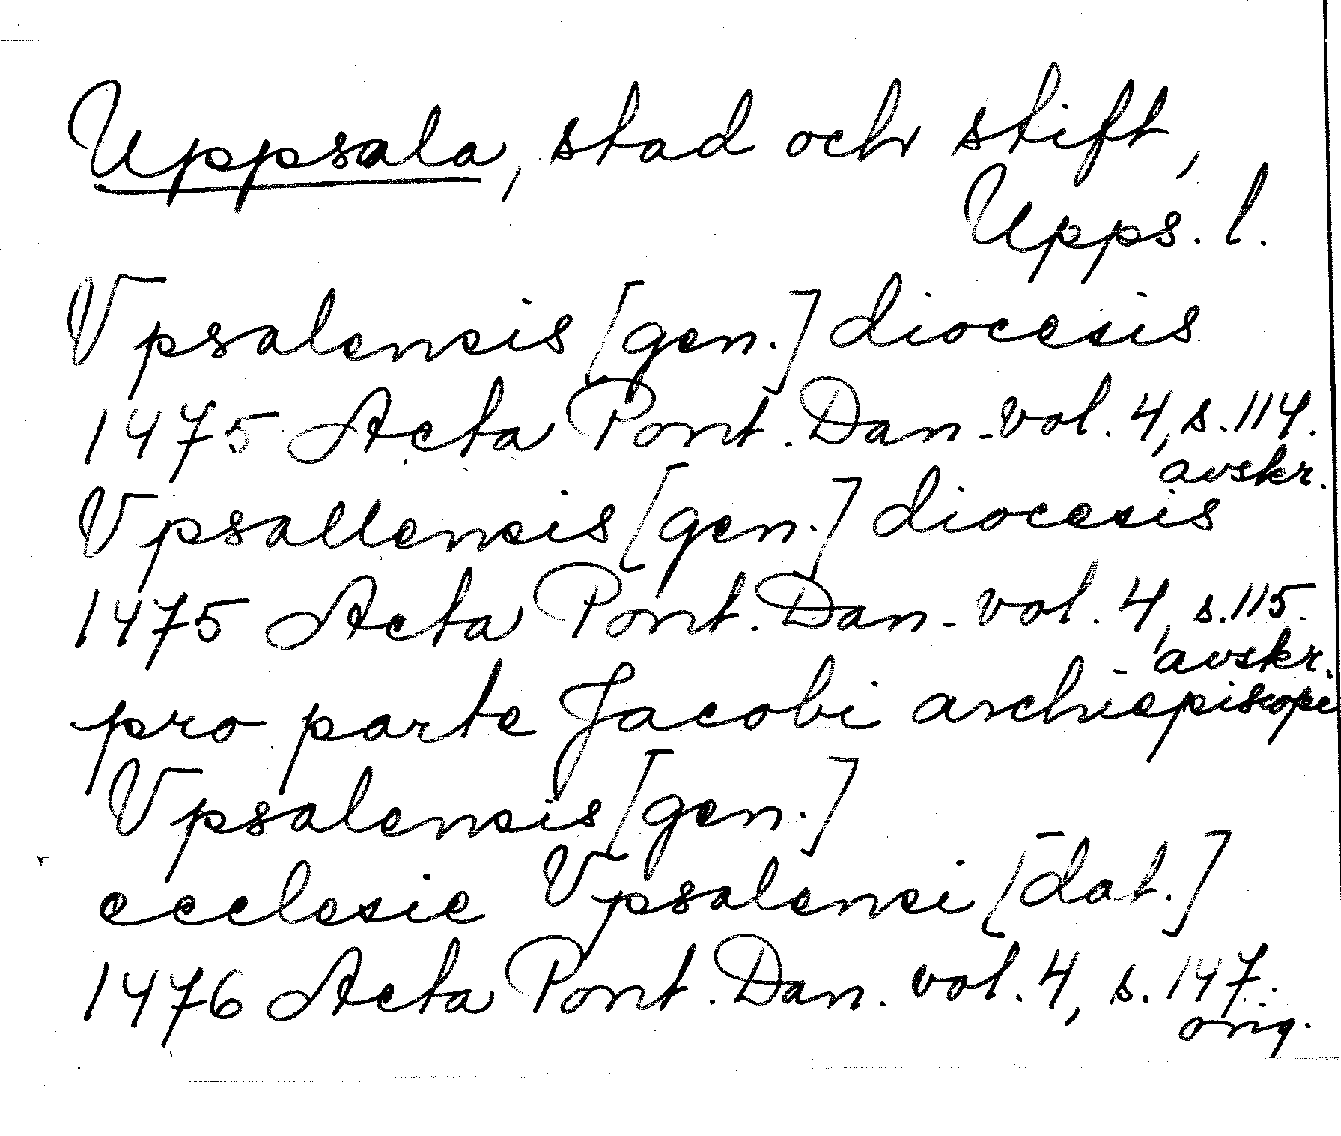 Uppsala, stad och stift,
Upps. l.
Vpsalensis [gen.] diocesis
1475 Acta Pont. Dan. vol. 4, s. 114.
avskr.
Vpsallensis [gen.] diocesis
1475 Acta Pont. Dan. vol. 4, s. 115.
avskr.
pro parte Jacobi archiepiscopi
Vpsalensis [gen.]
ecclesie Vpsalensi [dat.]
1476 Acta Pont. Dan. vol. 4, s. 147.
orig.